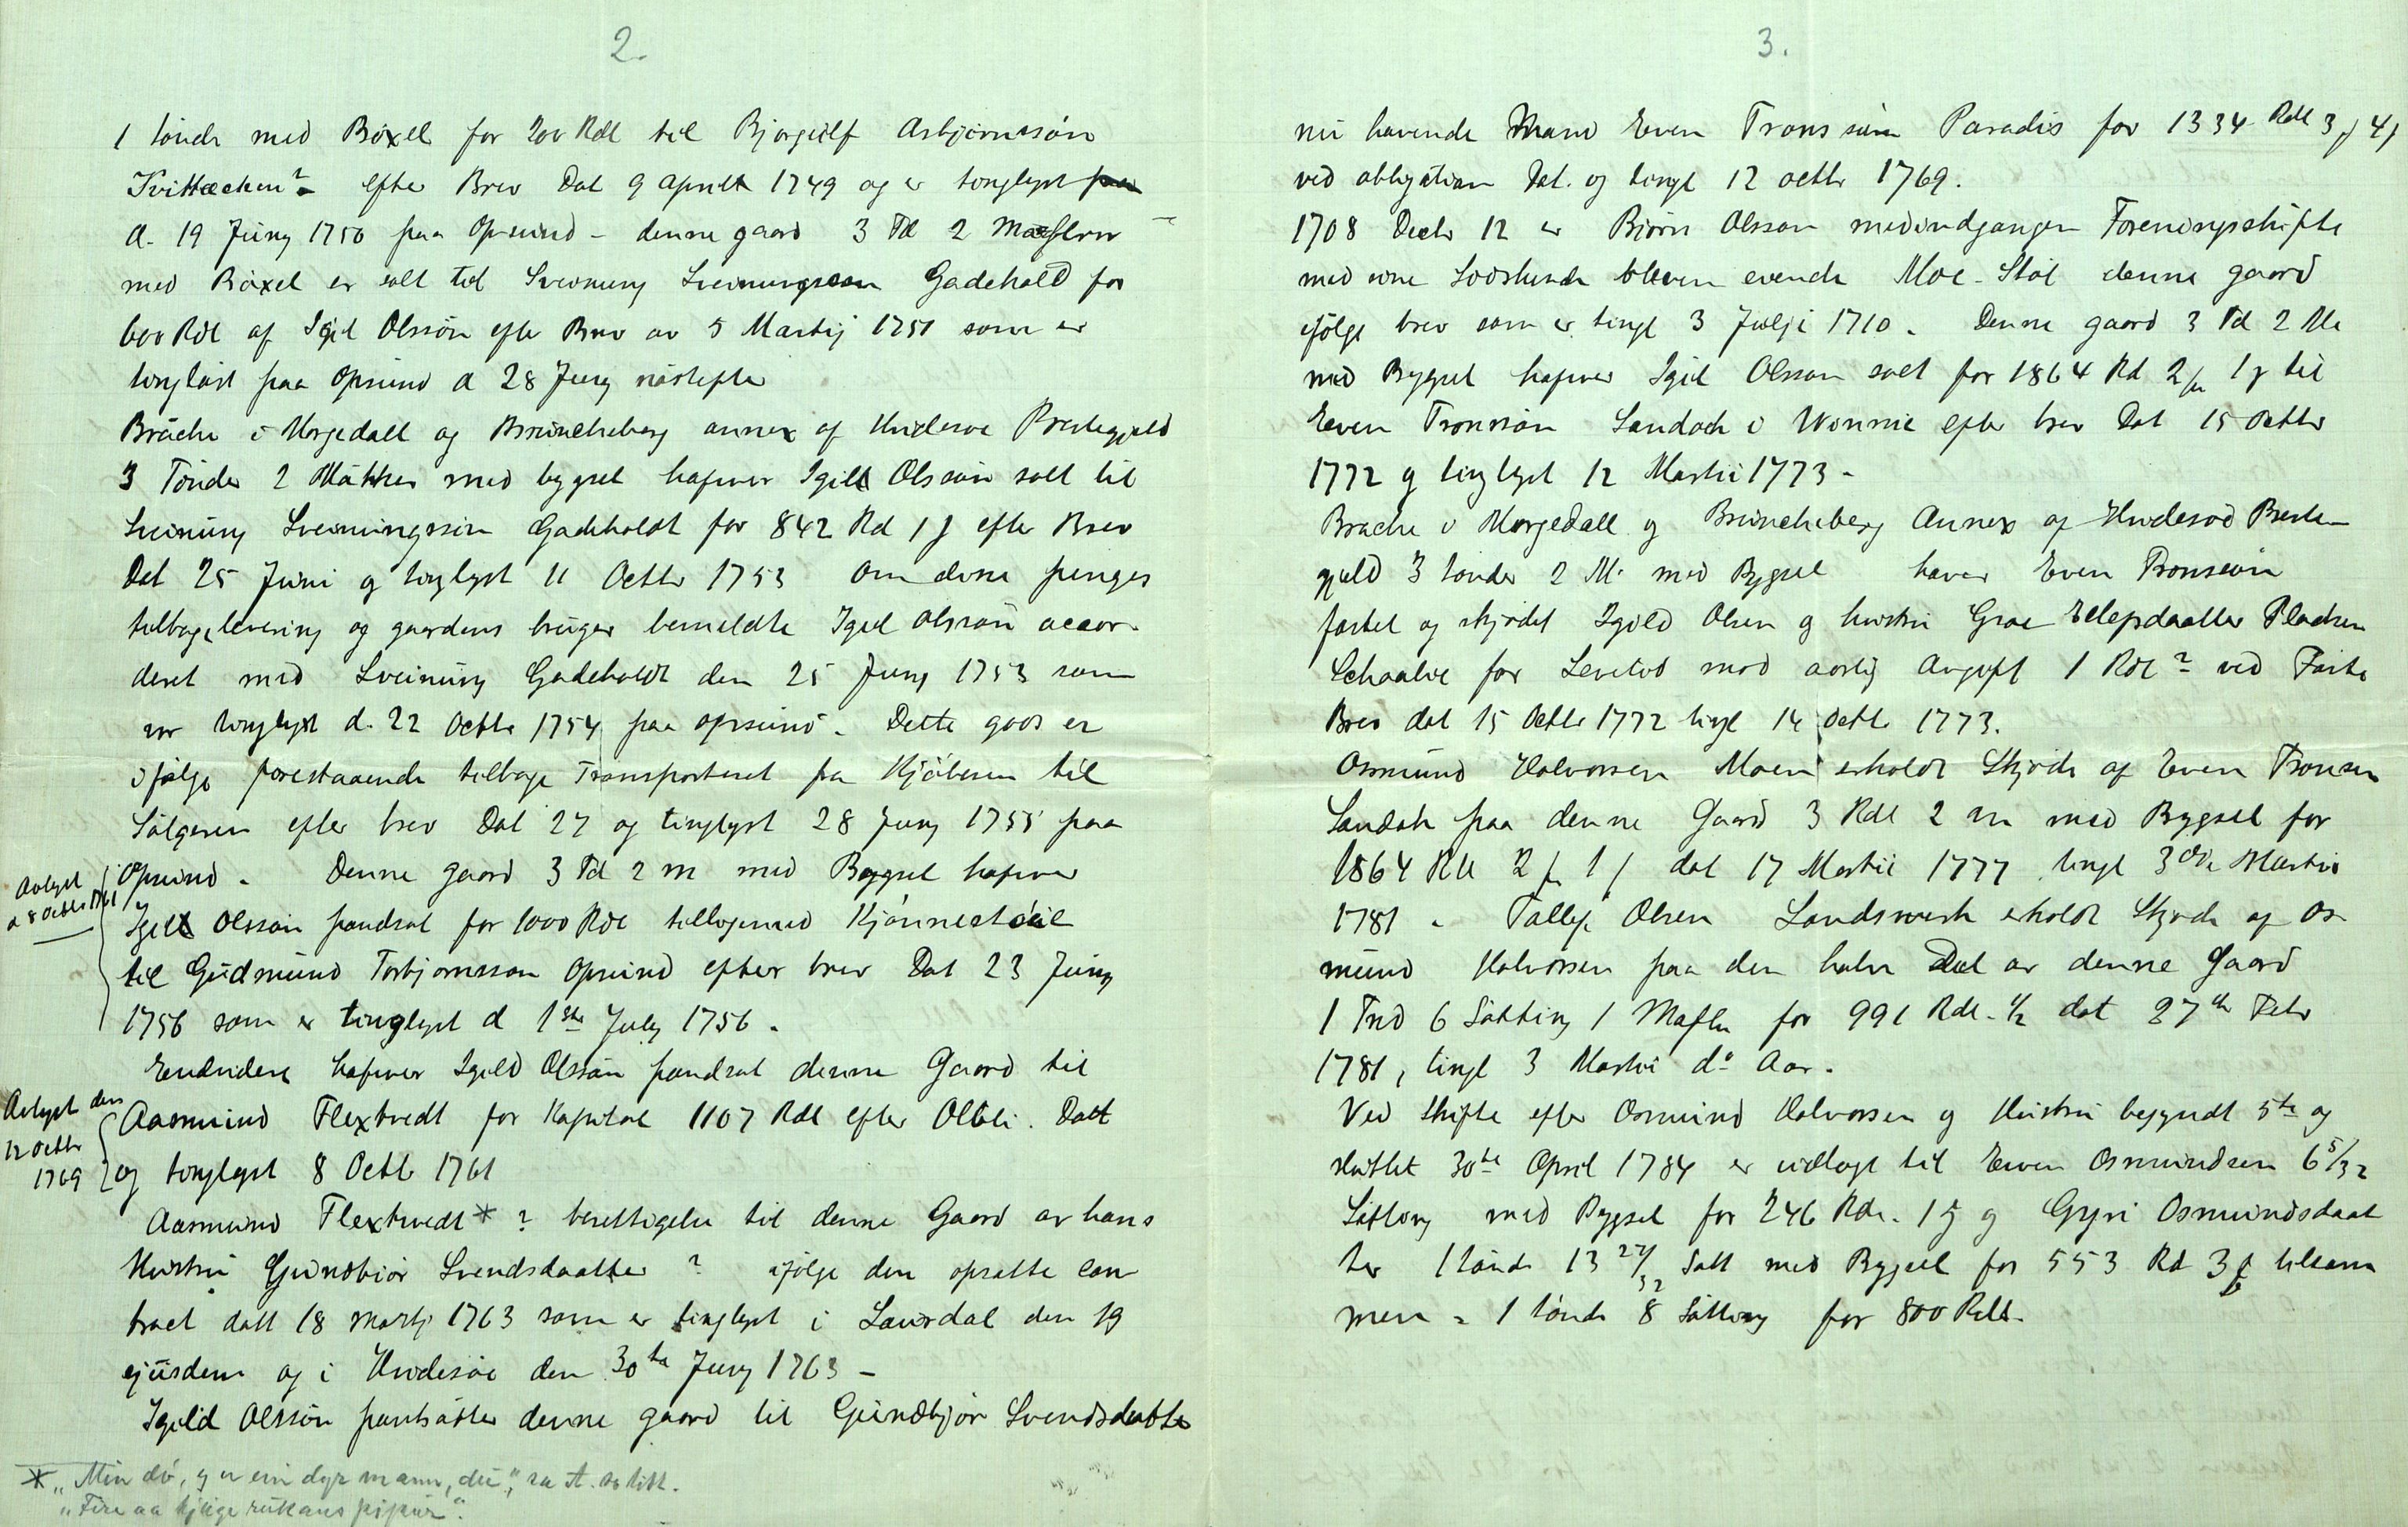 2.
1 tönde med Böxel for 200 Rdl til Bjorgulf Asbjörnssön
Kvittæchen ? efter Brev Dat 9 Aprill 1749 og er tinglyst
d. 19 Juny 1750 paa Opsund - denne gaard 3 Td 2
med Böxel er solt til Sveinung Sveinungsson Gadehold for
600 Rdl af Igil Olssön efter Brev av 5 Martij 1751 som er
tinglöst paa Opsund d 28 Juny næstefter
Bräche i Morgedall og Bruncheberg annex af Hvidesöe Prestegjeld
3 Tönder 2 Mäkker med bygsel hafver Igill Olssön solt til
Sveinung Sveinungssön Gadeholdt for 842 Rd 1 ƒ efter Brev
Dat 25 Juni og tinglyst 11 Octbr 1753 om disse penges
tilbagelevering og gaardens bruger bemeldte Igil Olssön accor-
deret med Sveinung Gadeholdt den 25 Juny 1753 som
er tinglyst d. 22 Octbr 1754 paa Opsund. Dette gods er
ifølge forestaaende tilbage Transporteret fra Kjöberen til
Sälgeren efter brev Dat 27 og tinglyst 28 Juny 1755 paa
Opsund. Denne gaard 3 Td 2 m med Bygsel hafver
Avlyst
d 8 Octbr 1761
Igill Olssön pandsat for 1000 Rdl tilligemed Kjönnestöil
til Gudmund Torbjornsson Opsund efter brev Dat 23 Juny
1756 som er tinglyst d 1ste July 1756.
Endvidere hafver Igild Olssön pandsat denne Gaard til
Avlyst den
12 Octbr
1769
Aasmund Flextvedt for Kapital 1107 Rdl efter Obli. Datt
og tinglyst 8 Octb 1761
Aasmund Flextvedt * ? berettigelse til denne Gaard av hans
Hustru Gundbiör Svendsdaatter ? ifölge den opsatte con
tract datt 18 Martj 1763 som er tinglyst i Laurdal den 19
ejusdem og i Hvidesöe den 30te Juny 1763 -
Igild Olssön pantsätter denne gaard til Gundbjör Svendsdatter
* „Min dö, eg er ein dyr mann, du", sa A. so titt.
„Fire aa
3.
nu havende Mand Even Tronssøn Paradis for 1334 Rdl 3 ƒ 4 ƒ
ved obligation Dat. og tingl 12 octbr 1769.
1708 Decbr 12 er Biörn Olsson medindgangen Foreningsskifte
med sine Sødskende bleven eiende Moe-Stöl denne gaard
ifölge brev som er tingl 3 Julji 1710. Denne gaard 3 Td 2 Mr
med Bygsel hafver Igil Olsson solt for 1864 Rd 2 1 til
Even Tronssön Landach i Winnie efter brev Dat 15 Octbr
1772 og tinglyst 12 Martii 1773 -
Brache i Morgedall og Bruncheberg Annex af Hvidesöd Preste-
gjeld 3 tönder 2 M. med Bygsel haver Even Tronssön
fæstet og skjödet Igild Olsen og hustru Groe Ellefsdaatter Pladsen
Schaalve for Levetid mod aarlig Avgift 1 Rdl ? ved Fæste
Brev dat 15 Octbr 1772 tingl 14 Octbr 1773.
Osmund Halvorsen Moen erholdt Skjöde af Even Tronsen
Landak paa denne Gaard 3 Rdl 2 m med Bygsel for
1864 Rdl 2 1 dat 17 Martii 1777 tingl 3die Martii
1781. Tallef Olsen Landswerk erholdt Skjöde af Os-
mund Halvorsen paa den halve Deel av denne Gaard
1 Tnd 6 Sätting 1 for 991 Rdl. ½ dat 27de Febr
1781, tingl 3 Martii do Aar.
Ved Skifte efter Osmund Halvorsen og Hustru begyndt 5te og
sluttet 30te April 1784 er udlagt til Even Osmundsen 6 5/32
Sätting med Bygsel for 246 Rdr. 1 og Gyri Osmundsdaat
ter 1 tönde 13 27/32 Sätt med Bygsel for 553 Rd 3 tilsam
men = 1 tönde 8 Sätting for 800 Rdl.